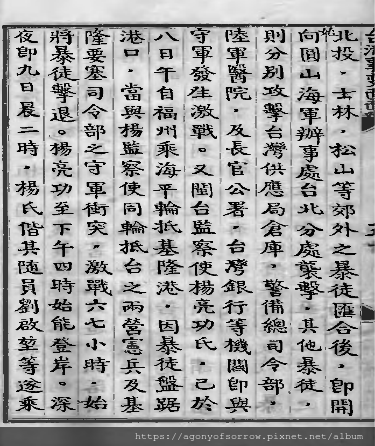 北投．士林．松山等郊外之暴徒匯合後．卽開
向圓山海軍辦事處台北分處襲擊．其他暴徒．
則分別攻擊台灣供應局倉庫．警備總司令部．
陸軍醫院．及長官公署．台灣銀行等機關卽與
守軍發生激戰。又閩台監察使楊亮功氏．已於
八日午自福州乘海平輪抵基隆港．因暴徒盤踞
港口．當與楊監察使同輪抵台之兩營憲兵及基
隆要塞司令部之守軍衝突．激戰六七小時．始
將暴徒擊退。楊亮功至下午四時始能登岸。深
夜卽九日晨二時．楊氏偕其隨員劉啟堃等遂乘
https://agonyofsorrow.pixnet.net/album